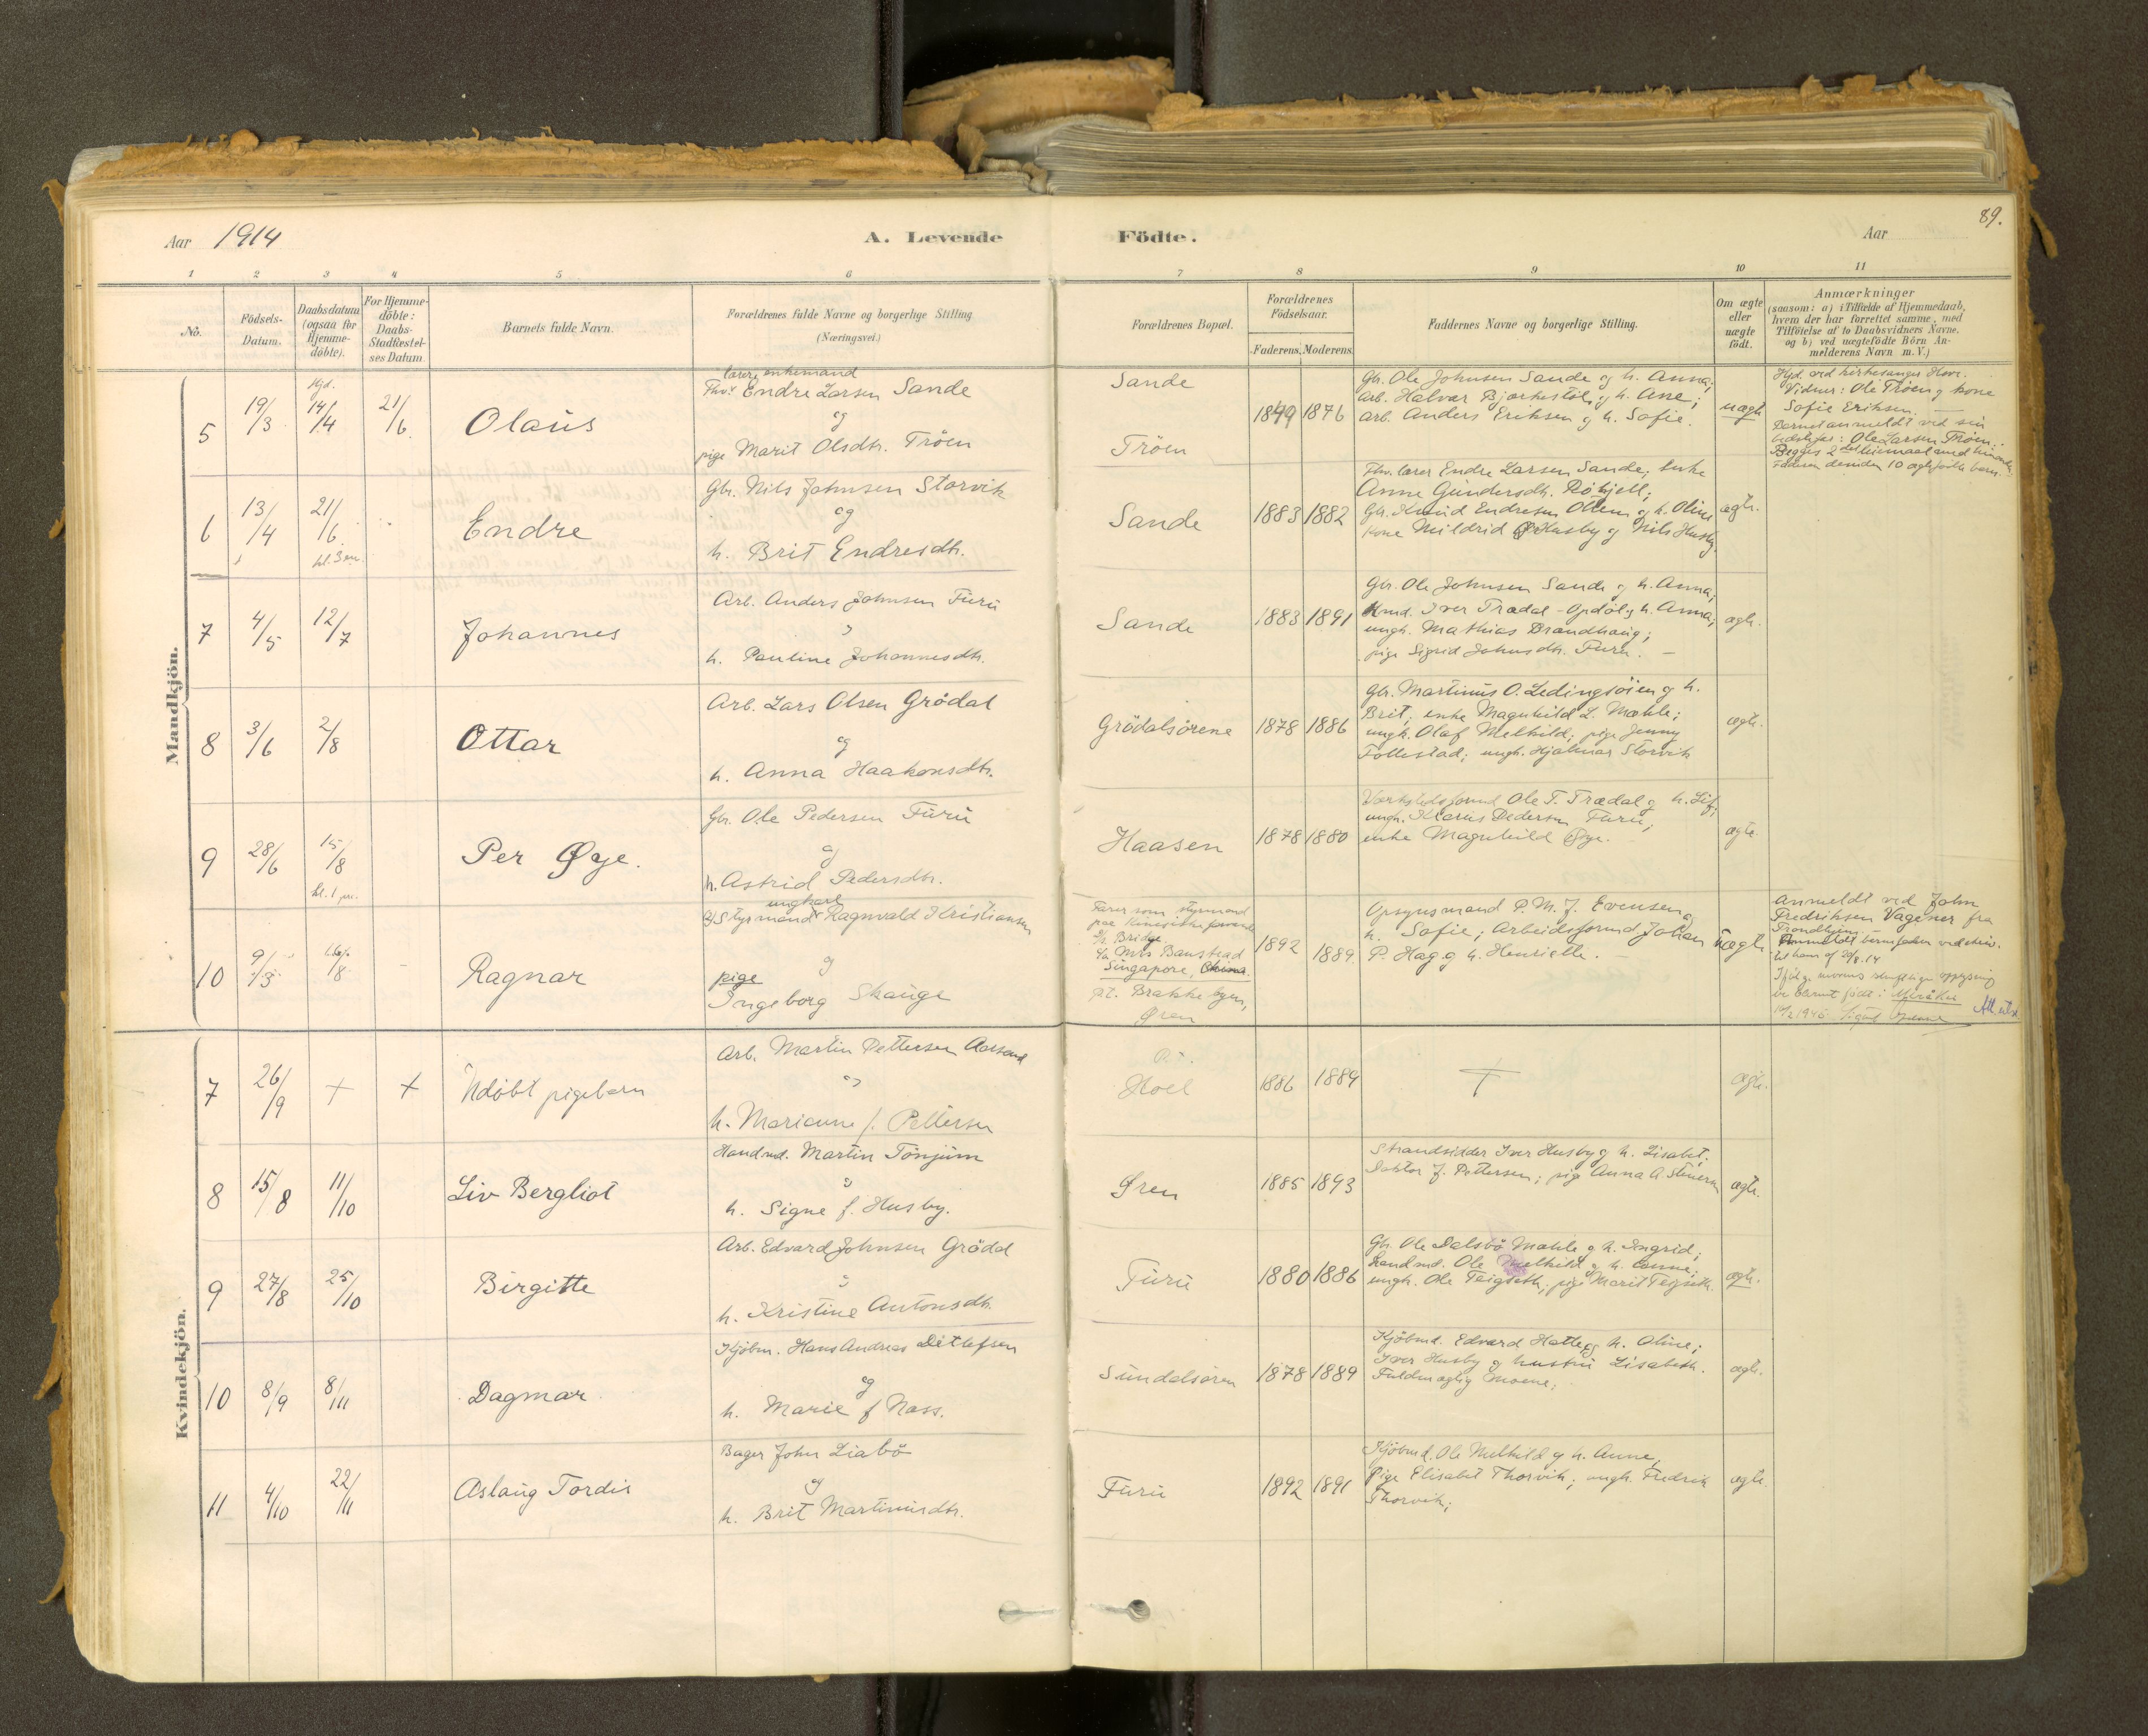 89.
Aar 1914
A. Levende
Födte.
Aar
1 2 3 4 5 6 7 8 9 10 11
No.
Födsels-
Datum.
Daabsdatum
(ogsaa for
Hjemme-
döbte).
For Hjemme-
döbte:
Daabs-
Stadfæstel-
ses Datum
Barnets fulde Navn.
Forældrenes fulde Navne og borgerlige Stilling
(Næringsvei.)
Forældrenes Bopæl.
Forældrenes
Födselsaar.
Faderens. Moderens.
Faddernes Navne og borgerlige Stilling.
Om ægte
eller
uægte
födt.
Anmærkninger
(saasom: a) i Tilfælde af Hjemmedaab,
hvem der har forrettet samme, med
Tilföielse af to Daabsvidners Navne.
og b) ved uægtefödte Börn An-
melderens Navn m. V.)
Mandkjön.
5
19/3
Hjd.
14/4
21/6
Olaus
lærer, enkemand
Fhv. Endre Larsen Sande
og
pige Marit Olsdtr. Tröen
Sande
Tröen
1849 1876
Gbr. Ole Johnsen Sande og h. Anna;
Arb. Halvar Bjørkestöl og h. Ane;
Arb. Anders Eriksen og h. Sofie.
uægte
Hjd. ved kirkesanger Hove.
Vidner: Ole Tröen og kone
Sofie Eriksen.
Barnet anmeldt ved sin
Ole Larsen Tröen.
6
13/4
21/6
kl. 3 em.
Endre
Gbr. Nils Johnsen Storvik
og
h. Brit Endresdtr.
Sande
1883 1882
Fhv. lærer Endre Larsen Sande; enke
Anne Gundersdtr. Röhjell;
Gbr. Knud Endresen Ottem og h. Oline
Kone Mildrid Husby og Nils Husby.
ægte.
7
4/5
12/7
Johannes
Arb. Anders Johnsen Furu
og
h. Pauline Johannesdtr.
Sande
1883 1891
Gbr. Ole Johnsen Sande og h. Anna;
Iver Trædal - Opdöl og h. Anna;
ungk. Mathias Brandhaug;
pige Sigrid Johnsdtr. Furu.
ægte.
8
3/6
2/8
Ottar
Arb. Lars Olsen Grödal
og
h. Anna Haakonsdtr.
Grödalsörene
1878 1886
Gbr. Martinus O. Ledingsöien og h.
Brit; enke Magnhild L. Mæhle;
ungk. Olaf Melhild; pige Jenny
Follestad; ungk. Hjalmar Storvik
ægte.
9
28/6
15/8
kl. 1 em.
Per Øye.
Gbr. Ole Pedersen Furu
og
h. Astrid Pedersdtr.
Haasen
1878 1880
Værkstedsformd. Ole T. Trædal og h. Liv;
ungk. Klaus Pedersen Furu;
enke Magnhild Øye.
ægte
10
Ragnar
ungkarl
Styrmand Ragnvald Kristiansen
og
pige
Ingeborg Skauge
Farer som styrmand
paa kinesiske farvande
Bridge
Mrs Banstead
Singapore, China.
pt. Brakke byen,
Øren
1892 1889.
Opsynsmand P. M. J. Evensen og
h. Sofie; Arbeidsformd Johan
P. Hag og h. Henriette.
uægte
Anmeldt ved John
Fredriksen Vagener fra
Trondhjem.
Kvindekjön.
7
26/9
+
+
Udöbt pigebarn
Arb. Martin Pettersen Aarsund
og
h. Marianne f. Pettersen
Hoel
1886 1889
+
ægte.
8
15/8
11/10
Liv Bergliot
Handmd. Martin Tönjum
og
h. Signe f. Husby.
Øren
1885 1893
Strandsidder Iver Husby og h. Lisabet;
Doktor J. Pettersen; pige Anna A.
ægte.
9
27/8
25/10
Birgitte
Arb. Edvard Johnsen Grödal
og
h. Kristine Antonsdtr.
Furu
1880 1886
Gbr. Ole Dalsbö Mæhle og h. Ingrid;
Landmd. Ole Melhild og h. Anne;
ungk. Ole Teigseth, pige Marit Teigseth.
ægte.
10
8/9
8/11
Dagmar
Kjöbm. Hans Andreas Detlefsen
og
h. Marie f Næss.
Sundalsören
1878 1889
Kjöbmd. Edvard Hatle og h. Oline;
Iver Husby og hustru Lisabeth.
Fuldmægtig Moene;
ægte.
11
4/10
22/11
Aslaug Tordis
Bager John Liabö
og
h. Brit Martinusdtr.
Furu
1892 1891
Kjöbmd. Ole Melhild og h. Anne,
Pige Elisabet Thorvik; ungk. Fredrik
Thorvik;
ægte.